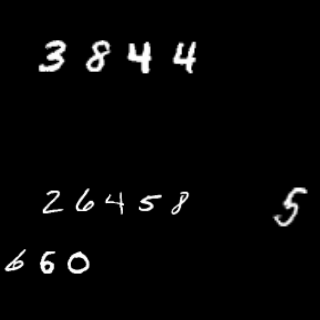 3844
26458
5
660